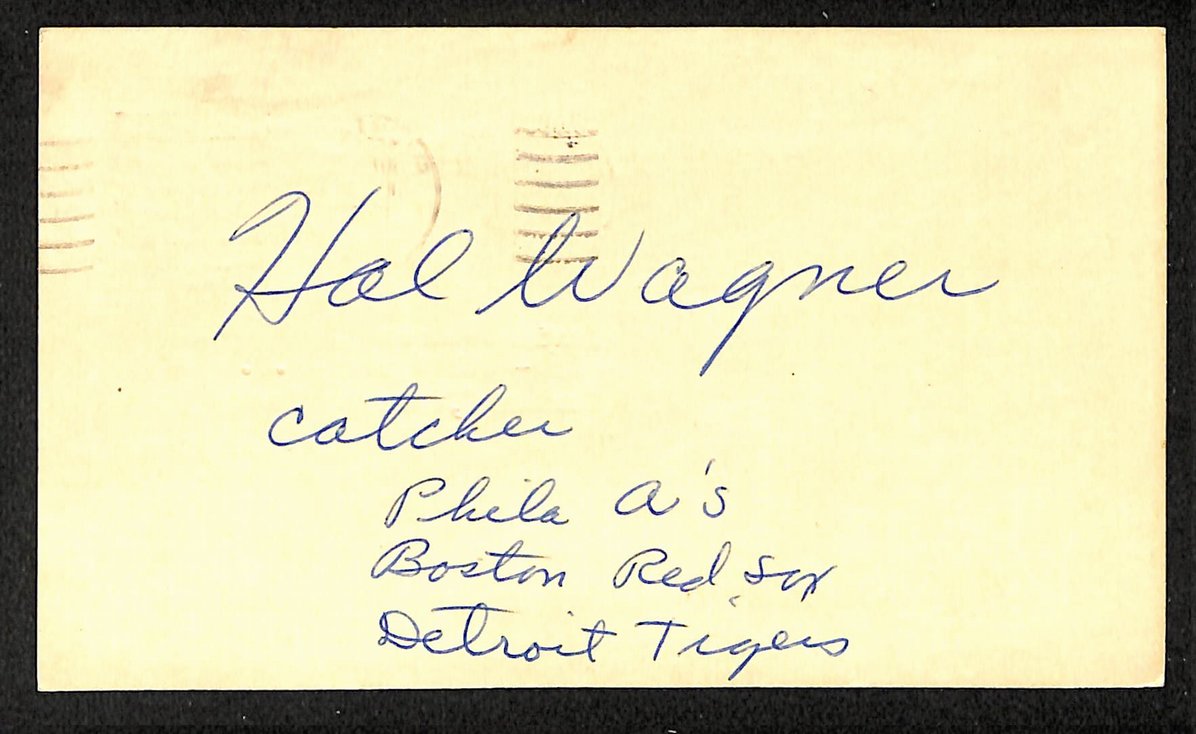 Hal Wagner
catcher
Phila A's
Boston Red Sox
Detroit Tigers